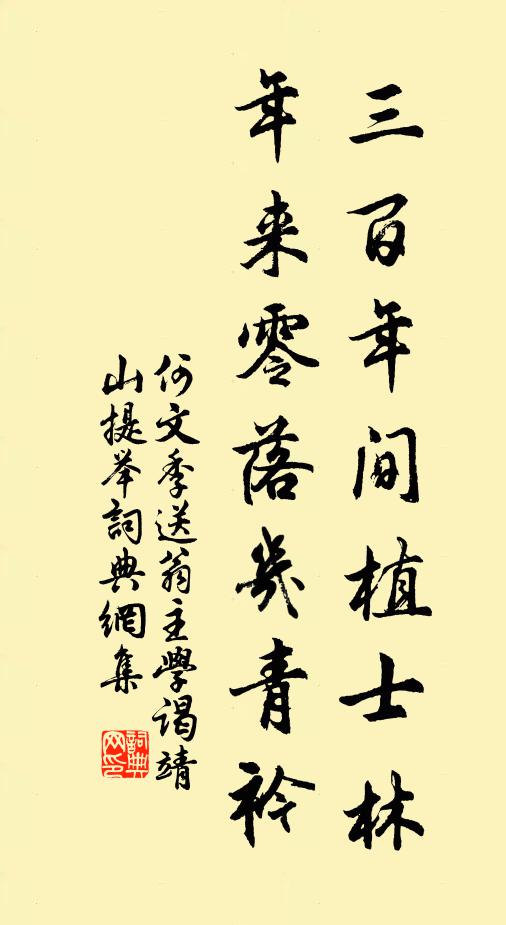 三百年间植士林
年来零落幾青衿
何文季送翁主學谒靖
山提举詞典網集
詞典网印